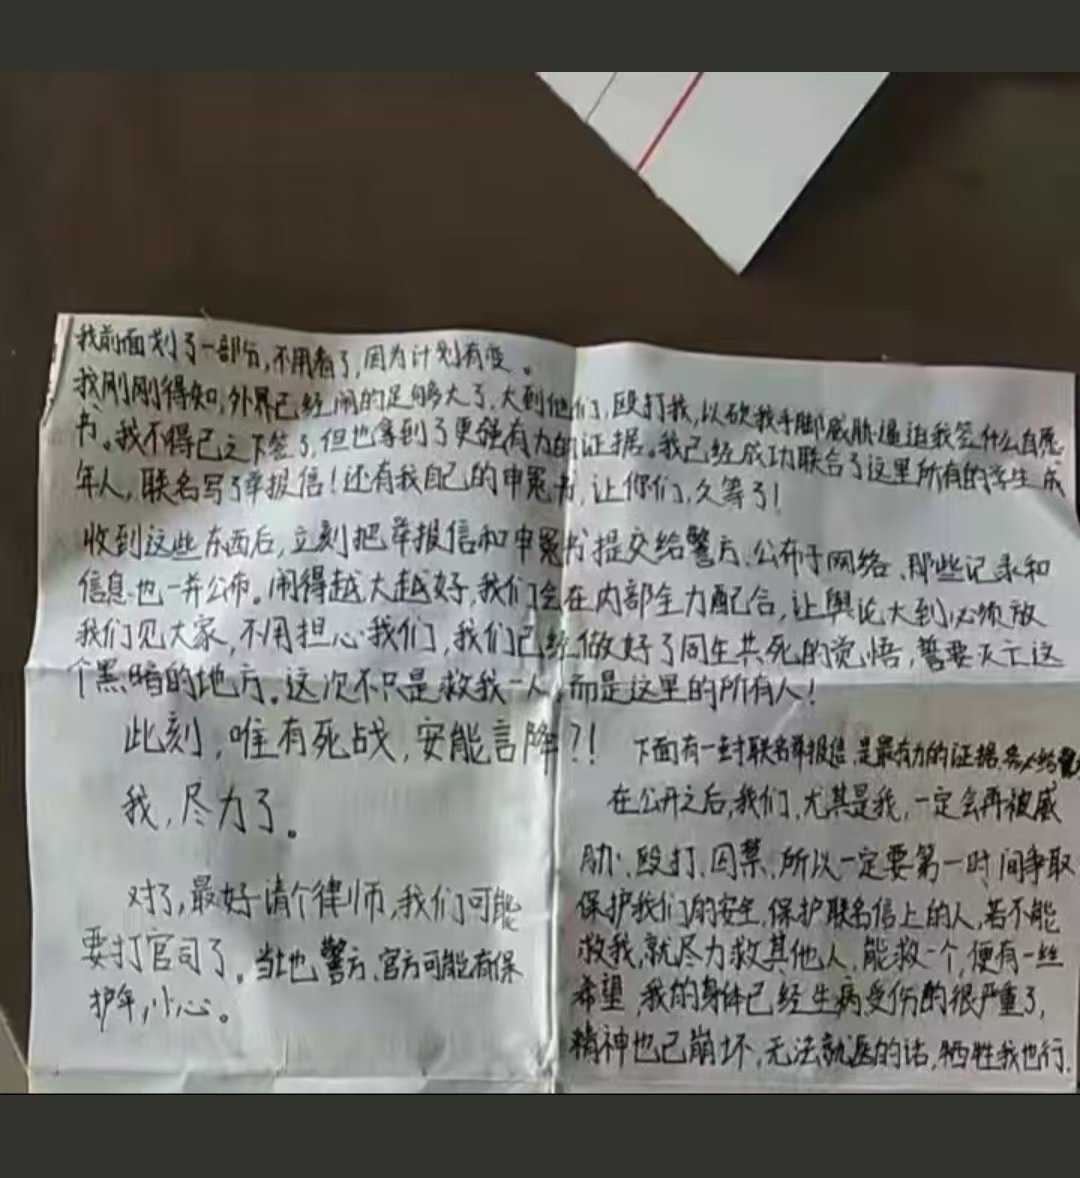 我前面划了一部份,不用看了,因为计划有变。
我刚刚得知,外界已经闹的足够大了,大到他们,殴打我,以砍我手脚威胁逼迫我签什么自愿
书。我不得已之下签了,但也拿到了更强有力的证据。我已经成功联合了这里所有的学生,成
年人,联名写了举报信!还有我自己的申冤书,让你们,久等了!
收到这些东西后,立刻把举报信和申冤书提交给警方、公布于网络、那些记录和
信息也一并公布。闹得越大越好,我们会在内部全力配合,让舆论大到必须放
我们见大家,不用担心我们,我们已经做好了同生共死的觉悟,誓要灭亡这
个黑暗的地方。这次不只是救我一人,而是这里的所有人!
此刻,唯有死战,安能言降?!
我,尽力了。
对了,最好请个律师,我们可能
要打官司了。当地警方、官方可能有保
护伞,小心。
下面有一封联名举报信,是最有力的证据,
在公开之后,我们,尤其是我,一定会再被威
胁、殴打、囚禁,所以一定要第一时间争取
保护我们的安全,保护联名信上的人,若不能
救我,就尽力救其他人,能救一个,便有一丝
希望,我的身体已经生病受伤的很严重了,
精神也已崩坏,无法救返的话,牺牲我也行.